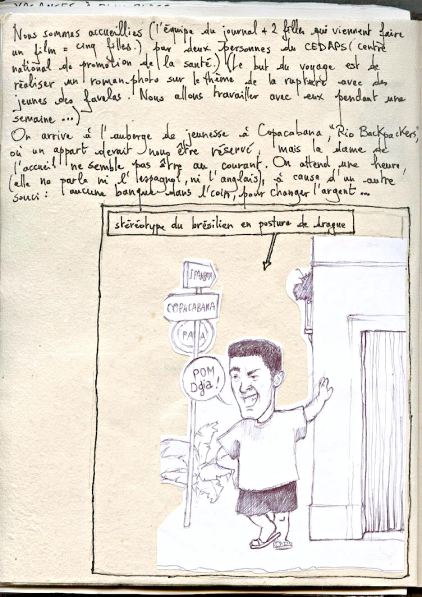 Nous sommes accueillies (l'équipe du journal + 2 filles qui viennent faire
un film = cinq filles.) par deux personnes du CEDAPS (centre
national de promotion de la santé.) (Le but du voyage est de
réaliser un roman-photo sur le thème de la rupture avec des
jeunes des favelas. Nous allons travailler avec eux pendant une
semaine...)
On arrive à l'auberge de jeunesse à Copacabana, "Rio Backpackers",
où un appart devait nous être réservé, mais la dame de
l'accueil ne semble pas être au courant. On attend une heure,
(elle ne parle ni l'espagnol, ni l'anglais), à cause d'un autre
souci : aucune banque dans l'coin, pour changer l'argent...
stéréotype du brésilien en posture de drague
IPANEMA
COPACABANA
POM
Dgia!